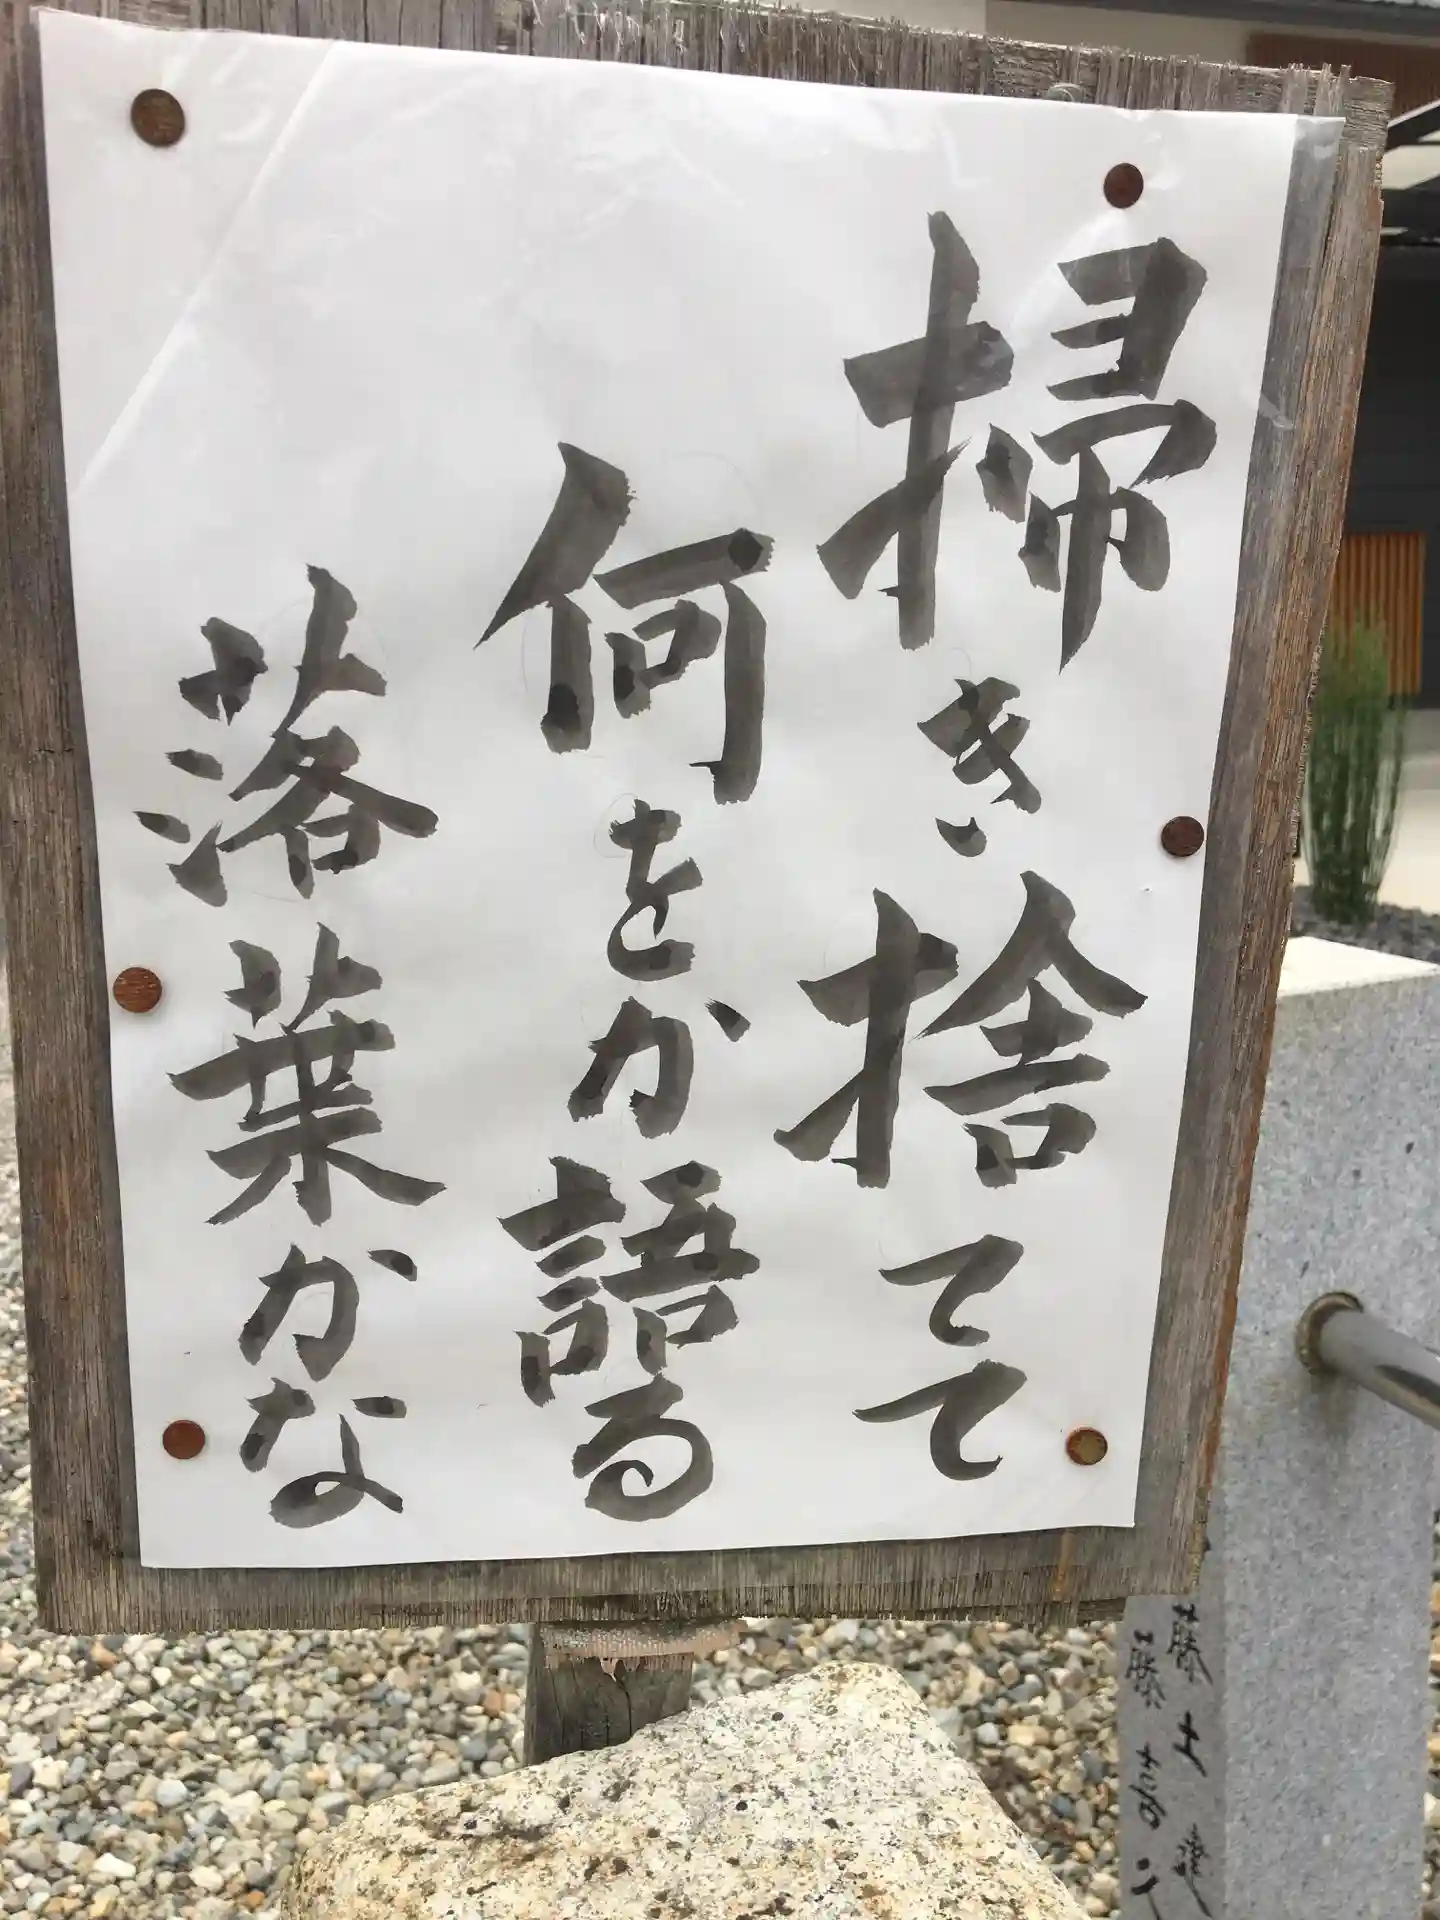 掃き捨てて
何をか語る
落葉かな